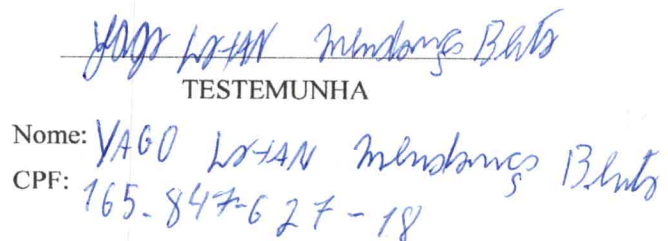 Yago Lohan Mendonça Bento
TESTEMUNHA
Nome: YAGO LohAN Mendonça Bento
CPF: 165.847-627-18